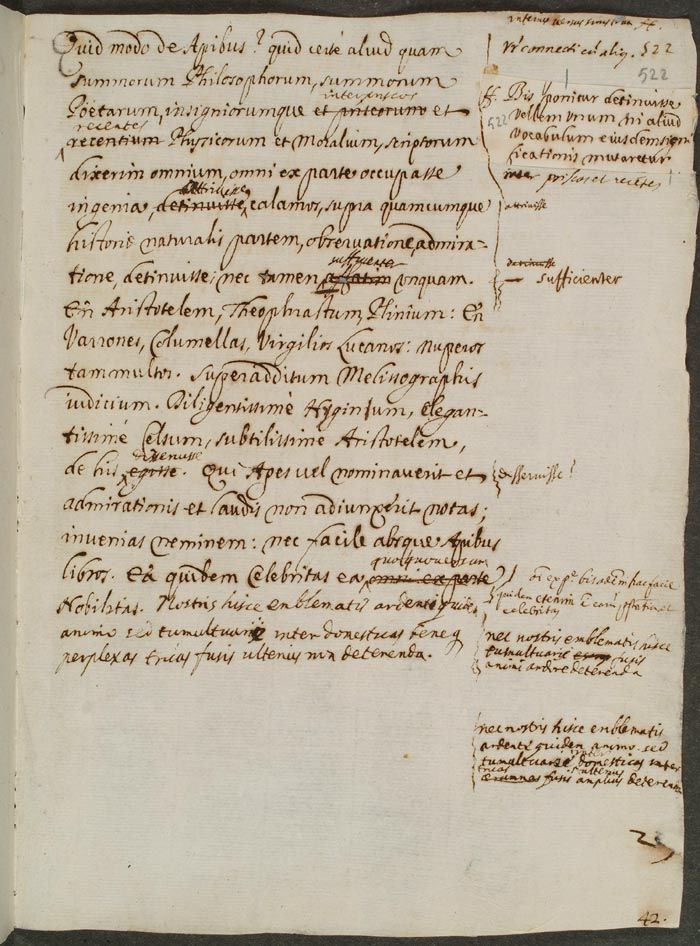 Quid modo de Apibus? quid certè aliud quam
summorum Philosophorum, summorum
Poëtarum, insigniorumque et priscorum et
inter priscos
recentes
recentium Physicorum et Moralium, scriptorum
dixerim omnium, omni ex parte occupasse
attriuisse
ingenia, detinuisse, calamos, supra quamcumque
historiæ naturalis partem, observatione, admira-
sufficienter
tione, detinuisse; nec tamen unquam.
En Aristotelem, Theophrastum, Plinium: En
Varrones, Columellas, Virgilios Lucanos: nuperos
tam multos. Superadditum Melissographis
iudicium. Diligentissimè Hyginium, elegan-
tissimè Celsum, subtilissimè Aristotelem,
de his egisse. Qui Apes vel nominaverit et
admirationis et laudis non adiunxerit notas;
invenias neminem: nec facile absque Apibus
quoquoversum
libros. Ea quidem Celebritas ea, omni ex parte
Nobilitas. Nostris hisce emblematis ardenti quidem
animo sed tumultuariè inter domesticas beneq
perplexas tricas fusis ulterius non deterenda.
Vt connecti 522
522
Bis ponitur detinuisse
522
vellem unum in aliud
vocabulum eiusdem signi-
ficationis mutaretur
inter priscos et recentes
attriuisse
detinuisse
sufficienter
deseruisse?
celebritas
nec nostris emblematis hisce
tumultuariè fusis
animi ardore deterenda
nec nostris hisce emblematis
ardenti quidem animo sed
inter
tumultuariè domesticas inter
tricas ulterius
ærumnas fusis amplius deterenda
42.